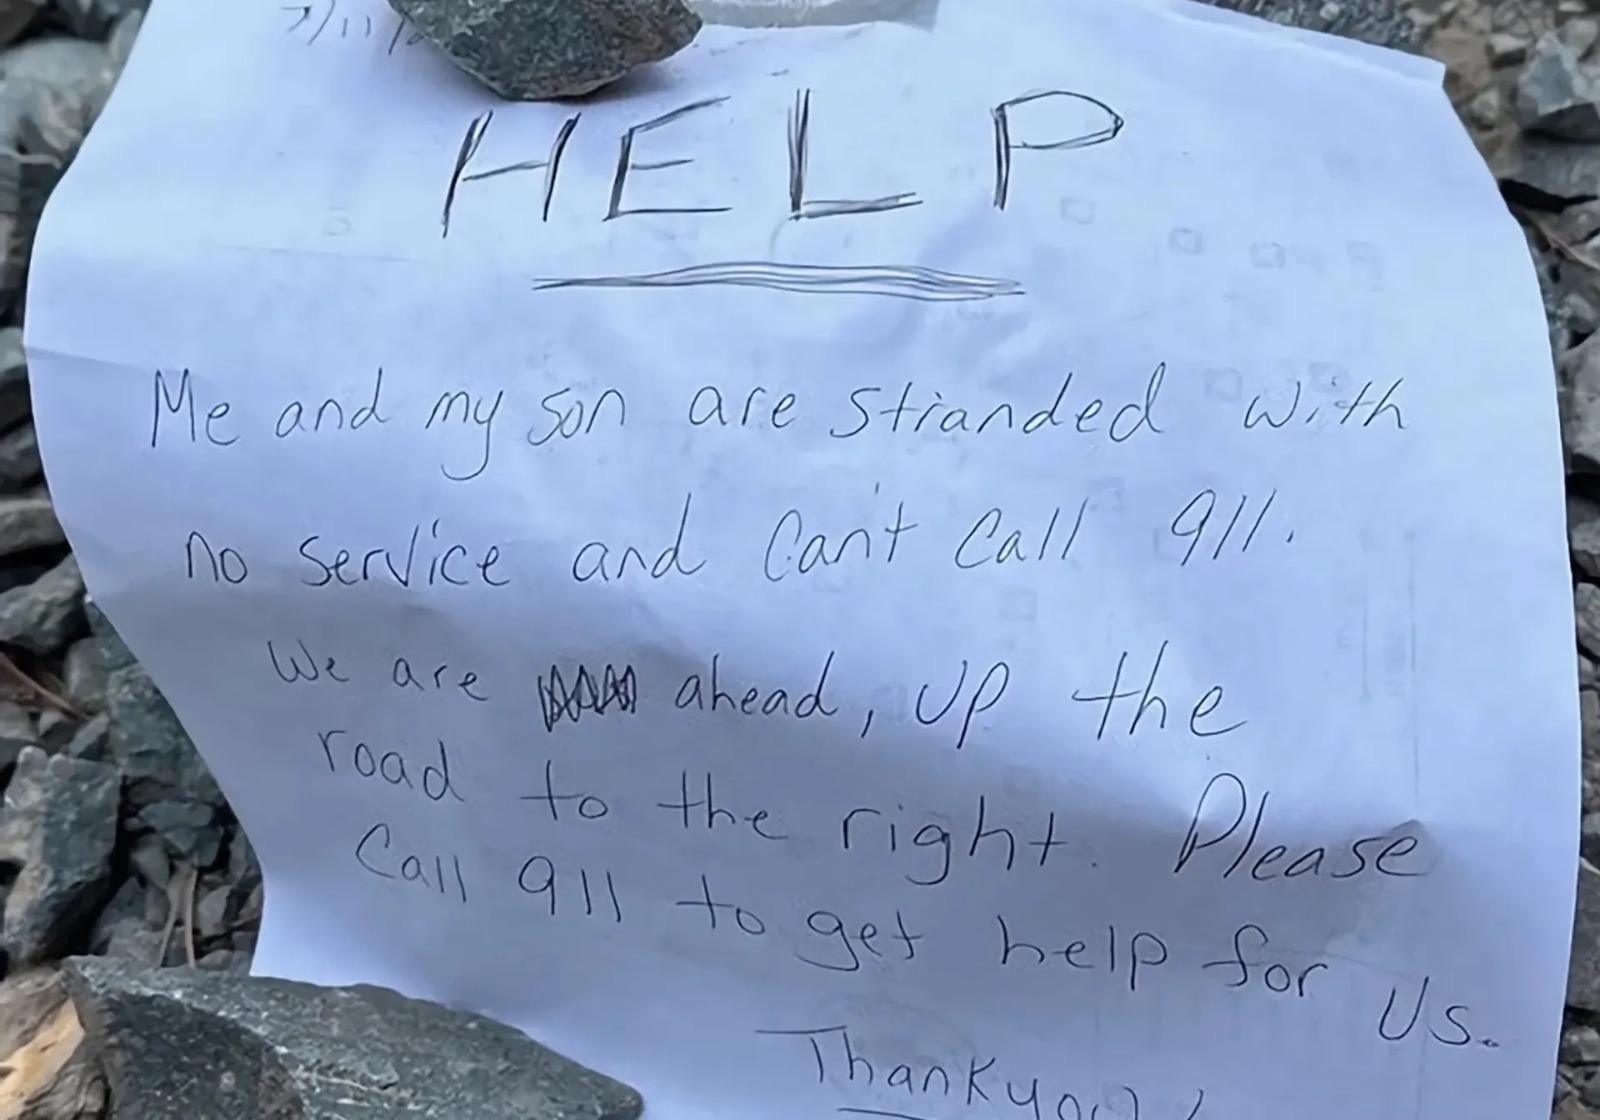 7/11/
HELP
Me and my son are stranded with
no service and can't call 911.
We are ahead, up the
road to the right. Please
Call 911 to get help for
Us.
Thank you!